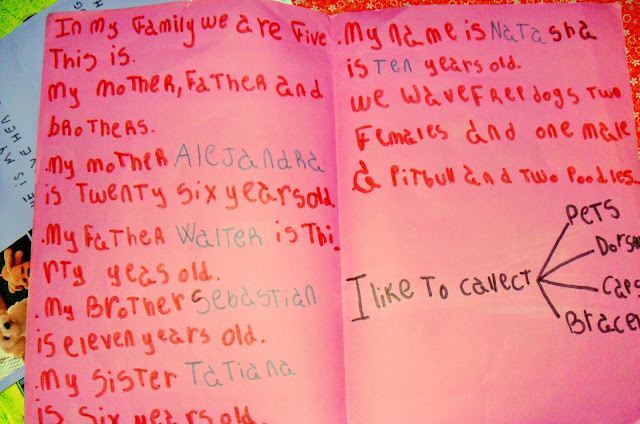 In my Family we are Five
This is.
My mother, Father and
brothers.
.My mother Alejandra
is Twenty six years old.
.My Father Walter is Thi_
rty yeas old.
.My Brother Sebastian
is eleven years old.
.My Sister Tatiana
is six years old.
.My name is Natasha
is Ten years old.
we wave free dogs Two
Females and one male
a Pitbull and Two Poodles.
I like To callect
Pets
Caps